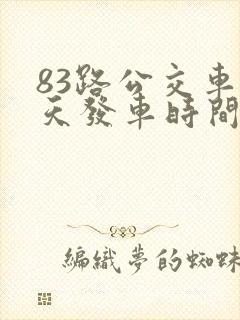 83路公交車
天發車時間
編織夢的蜘蛛